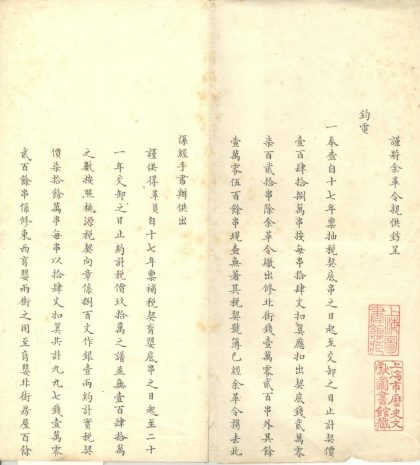 謹將余革令親供鈔呈
鈞電
一奉查自十七年票抽稅契底串之日起至交卸之日止計契價
壹百肆拾捌萬串按每串拾肆文扣算應扣出契底錢貳萬零
柒百貳拾串除余革令繳出修北街錢壹萬零貳百串外其餘
壹萬零伍百餘串現查無著其稅契號簿已經余革令携去此
係經手書辦供出
謹供得革員自十七年票補稅契育嬰底串之日起至二十
一年交卸之日止約計稅價玖拾萬之譜並無壹百肆拾萬
之數按照桃源稅契向章係捌百文作銀壹兩約計實稅契
價柒拾餘萬串每串以拾肆文扣算共計九九七錢壹萬零
貳百餘串係修東西育嬰兩街之用至育嬰北街房屋百餘
上海圖書館藏
上海市歷史文獻圖書館藏